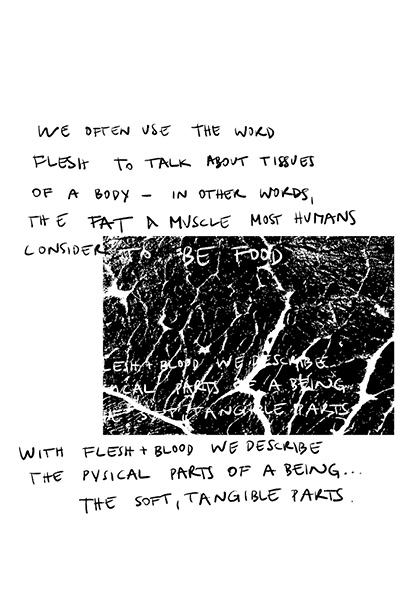 WE OFTEN USE THE WORD
FLESH TO TALK ABOUT TISSUES
OF A BODY – IN OTHER WORDS,
THE FAT & MUSCLE MOST HUMANS
CONSIDER TO BE FOOD
FLESH + BLOOD WE DESCRIBE
PARTS OF A BEING
TANGIBLE PARTS
WITH FLESH + BLOOD WE DESCRIBE
THE PVSICAL PARTS OF A BEING...
THE SOFT, TANGIBLE PARTS.